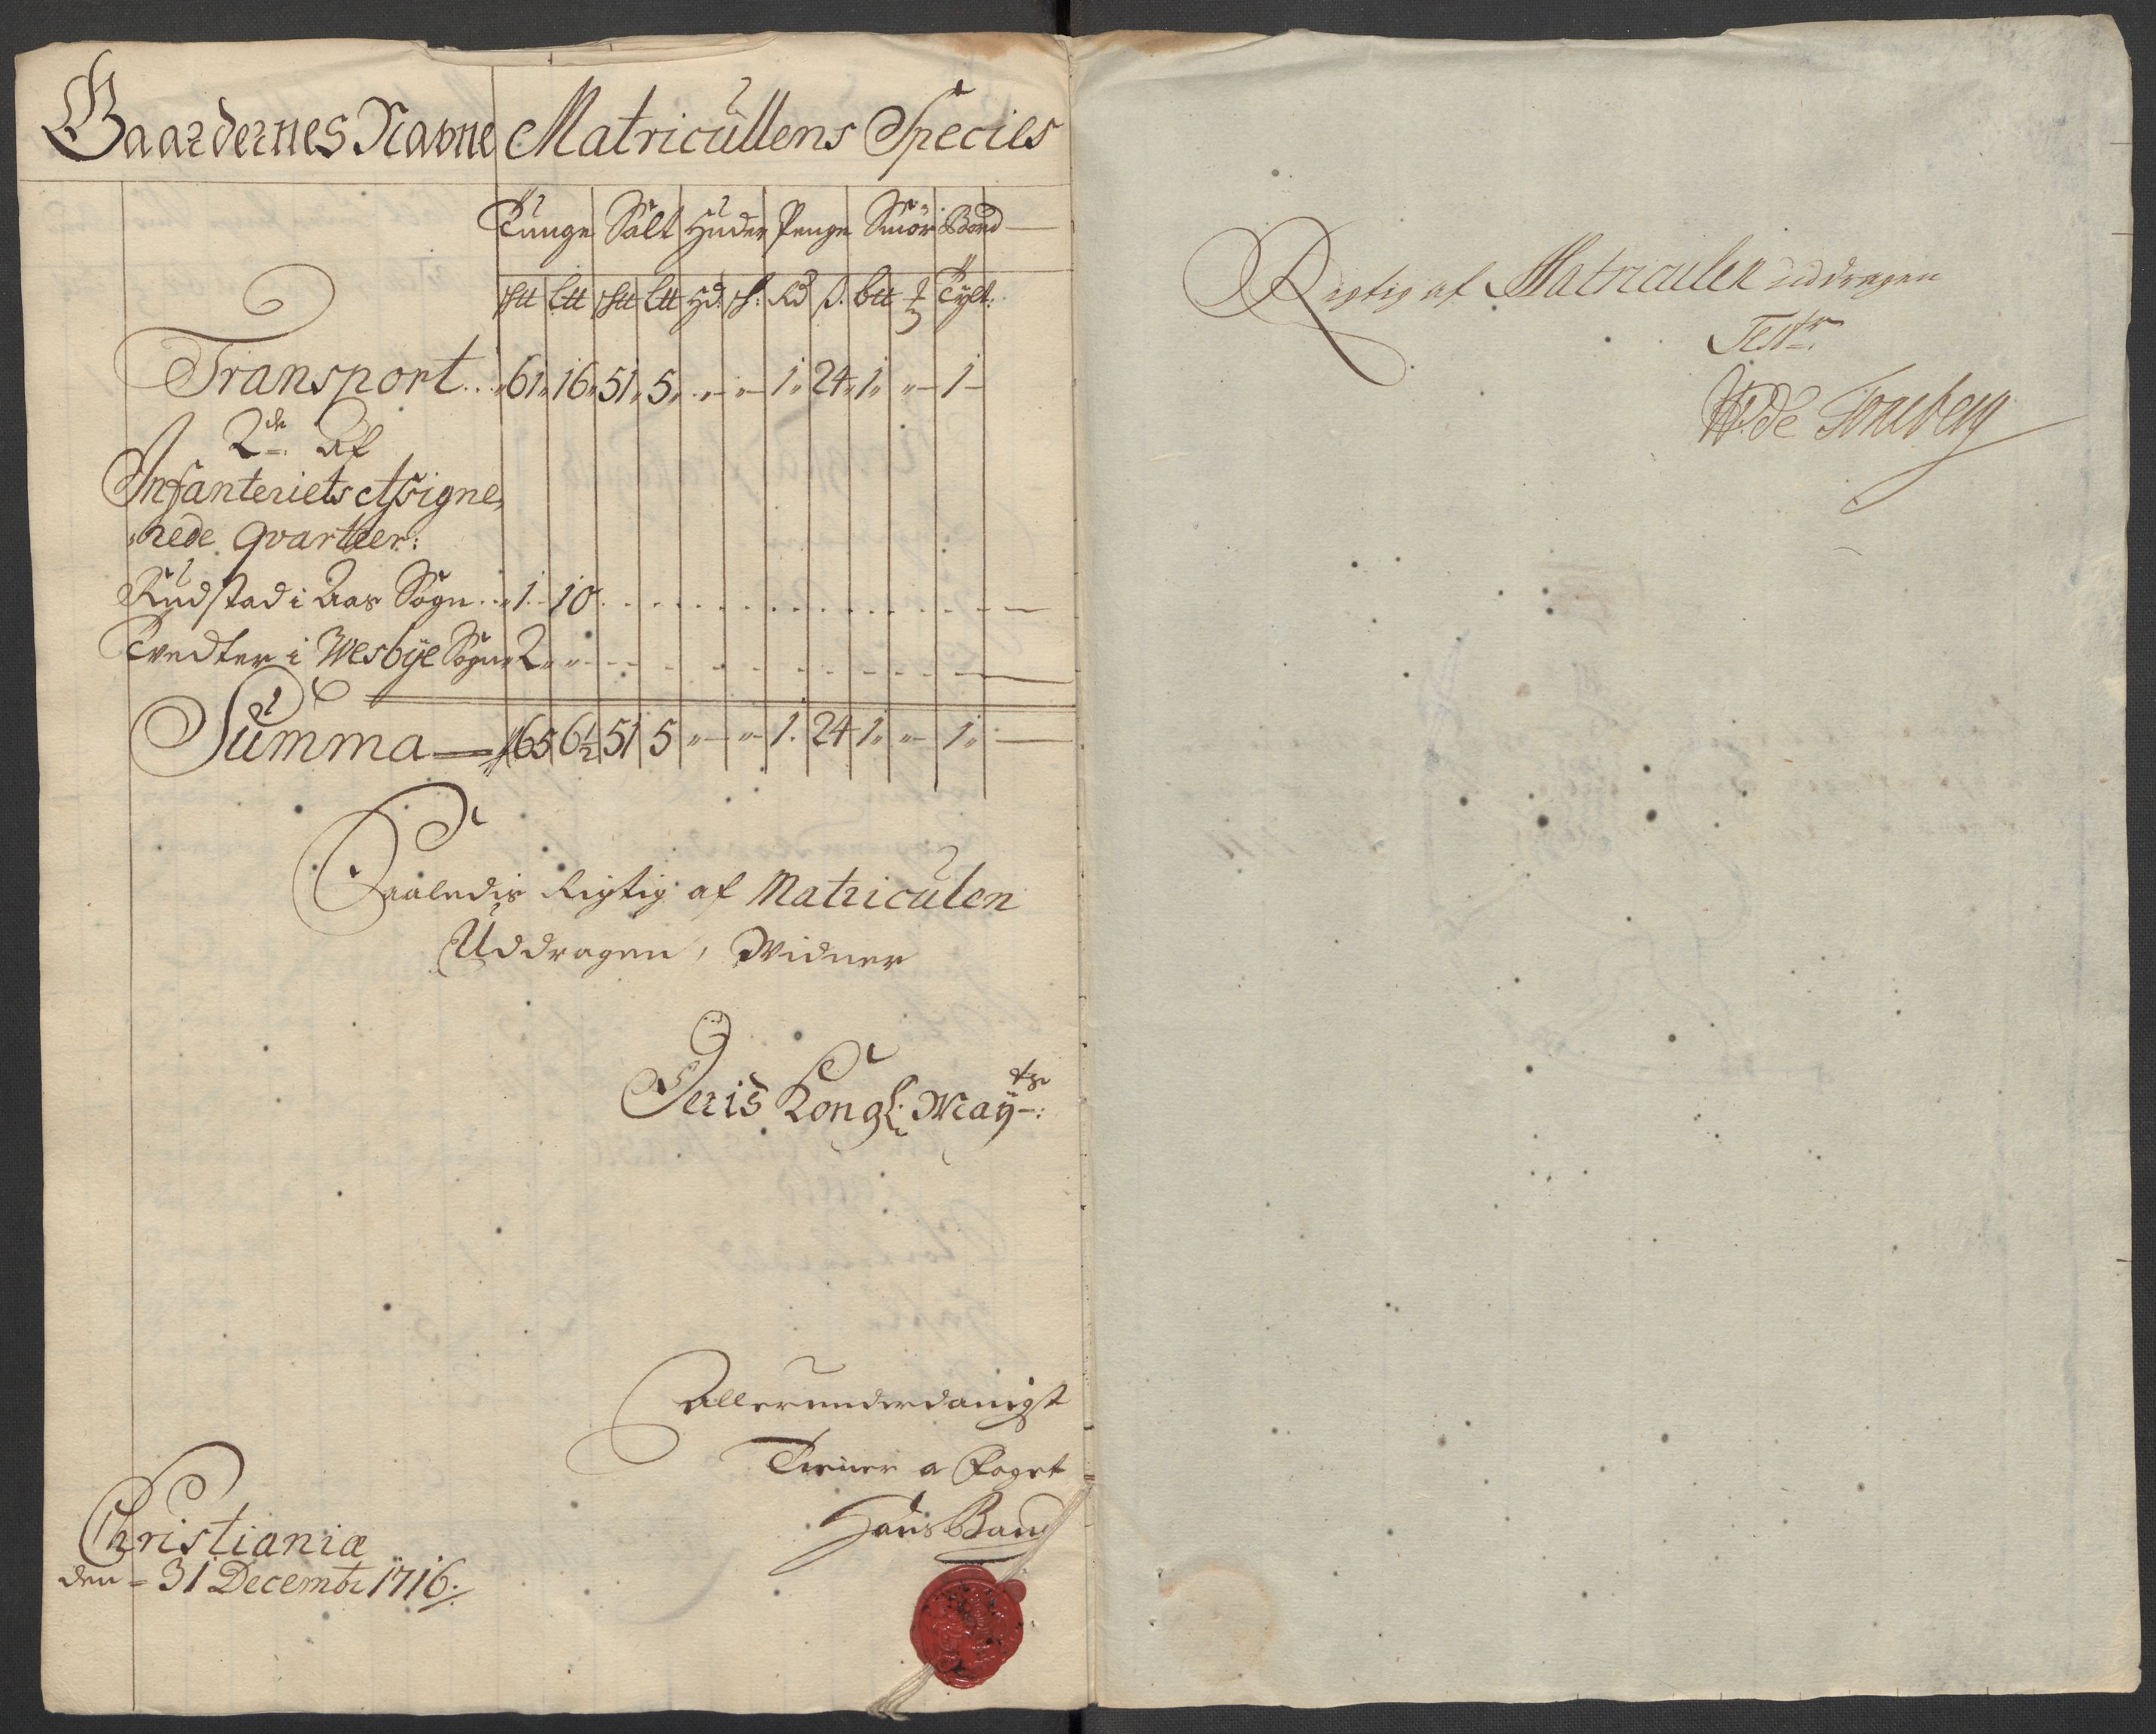 Gaardernes Navne Matricullens Species
Tunge Salt Huder Penge Smör Bord
Tylt:
Transport 61 16 51 5 1 24 1 1
2de Af
Infanteriets Assigne
rede qvarteer:
Rudstad i Aas Sogn 1 10
Tvedter i Wesbye Sogn 2
Summa 65 6½ 51 5 1. 24 1 1
Saaledis Rigtig af Matriculen
Uddragen, Widner
Deris Kongl: May ts:
Allerunderdanigst
Tiener a Foget
Hans
Christianiæ
den 31 Decembr 1716.
Rigtig af Matriculen uddragen
Test: